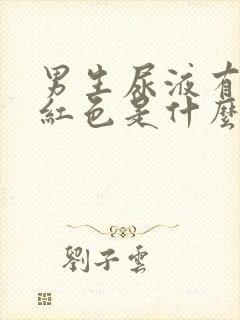 男生尿液有
紅色是什麼
劉子雲